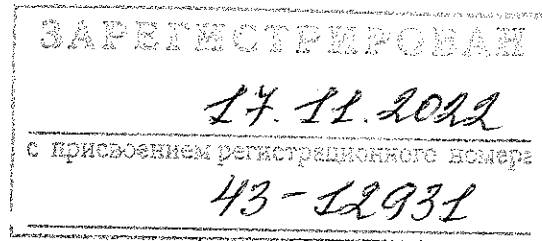 ЗАРЕГИСТРИРОВАН
17.11.2022
с присвоением регистрационного номера
43-12931